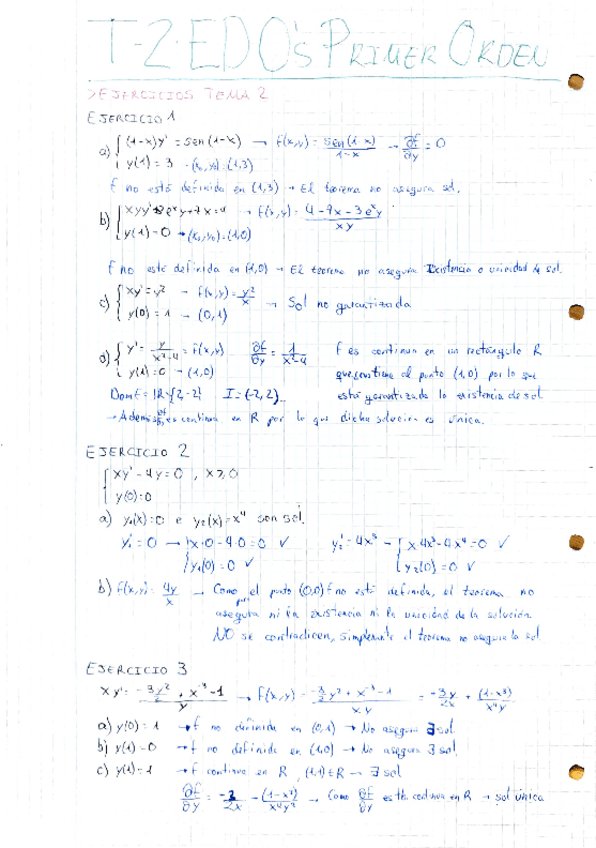 T-2. EDO's PRIMER ORDEN
>EJERCICIOS TEMA 2
EJERCICIO 1
a) { (1-x)y' = sen(1-x) → f(x,y) = sen(1-x)/1-x → ∂f/∂y = 0
y(1) = 3 - (x₀,y₀)=(1,3)
f no está definida en (1,3) → El teorema no asegura sol.
b) { xyy'+3eˣy+7x=4 → f(x,y) = 4-7x-3eˣy / xy
y(1)=0 → (x₀,y₀)=(1,0)
f no está definida en (1,0) → El teorema no asegura Existencia o unicidad de sol.
c) { xy'=y² - f(x,y)=y²/x → Sol no garantizada
y(0)=1 - (0,1)
d) { y' = y/x²-4 = f(x,y) ∂f/∂y = 1/x²-4 f es continua en un rectángulo R
y(1)=0 - (1,0) que contiene al punto (1,0) por lo que
Dom f = R-{2,-2} I=(-2,2) está garantizada la existencia de sol
→ Además ∂f/∂y es continua en R por lo que dicha solución es única.
EJERCICIO 2
{ xy'-4y=0 , x≥0
y(0)=0
a) y₁(x)=0 e y₂(x)=x⁴ son sol.
y₁'=0 → { x·0-4·0=0 ✓ y₂'=4x³ - { x·4x³-4x⁴=0 ✓
y₁(0)=0 ✓ y₂(0)=0 ✓
b) f(x,y)=4y/x → Como en el punto (0,0) f no está definida, el teorema no
asegura ni la existencia ni la unicidad de la solución.
NO se contradicen, simplemente el teorema no asegura la sol
EJERCICIO 3
xy' = -3/2 y² + x⁻³-1 / y → f(x,y) = -3/2 y² + x⁻³-1 / xy = -3y/2x + (1-x³)/x⁴y
a) y(0)=1 → f no definida en (0,1) → No asegura ∃ sol.
b) y(1)=0 → f no definida en (1,0) → No asegura ∃ sol.
c) y(1)=1 → f continua en R, (1,1)∈R → ∃ sol
∂f/∂y = -3/2x - (1-x³)/x⁴y² → Como ∂f/∂y es tb. continua en R → sol única